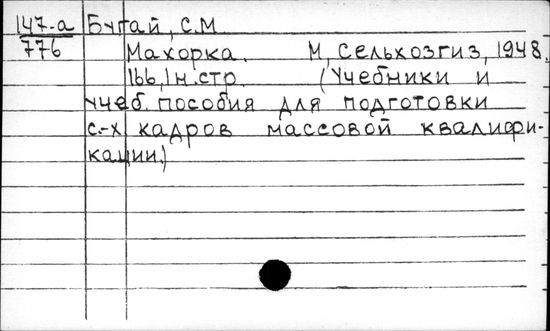 147-а Бугай, С.М.
776 Махорка. М, Сельхозгиз, 1948.
166,1н.стр. (Учебники и
учеб. пособия для подготовки
с.-х кадров массовой квалифи-
кации.)